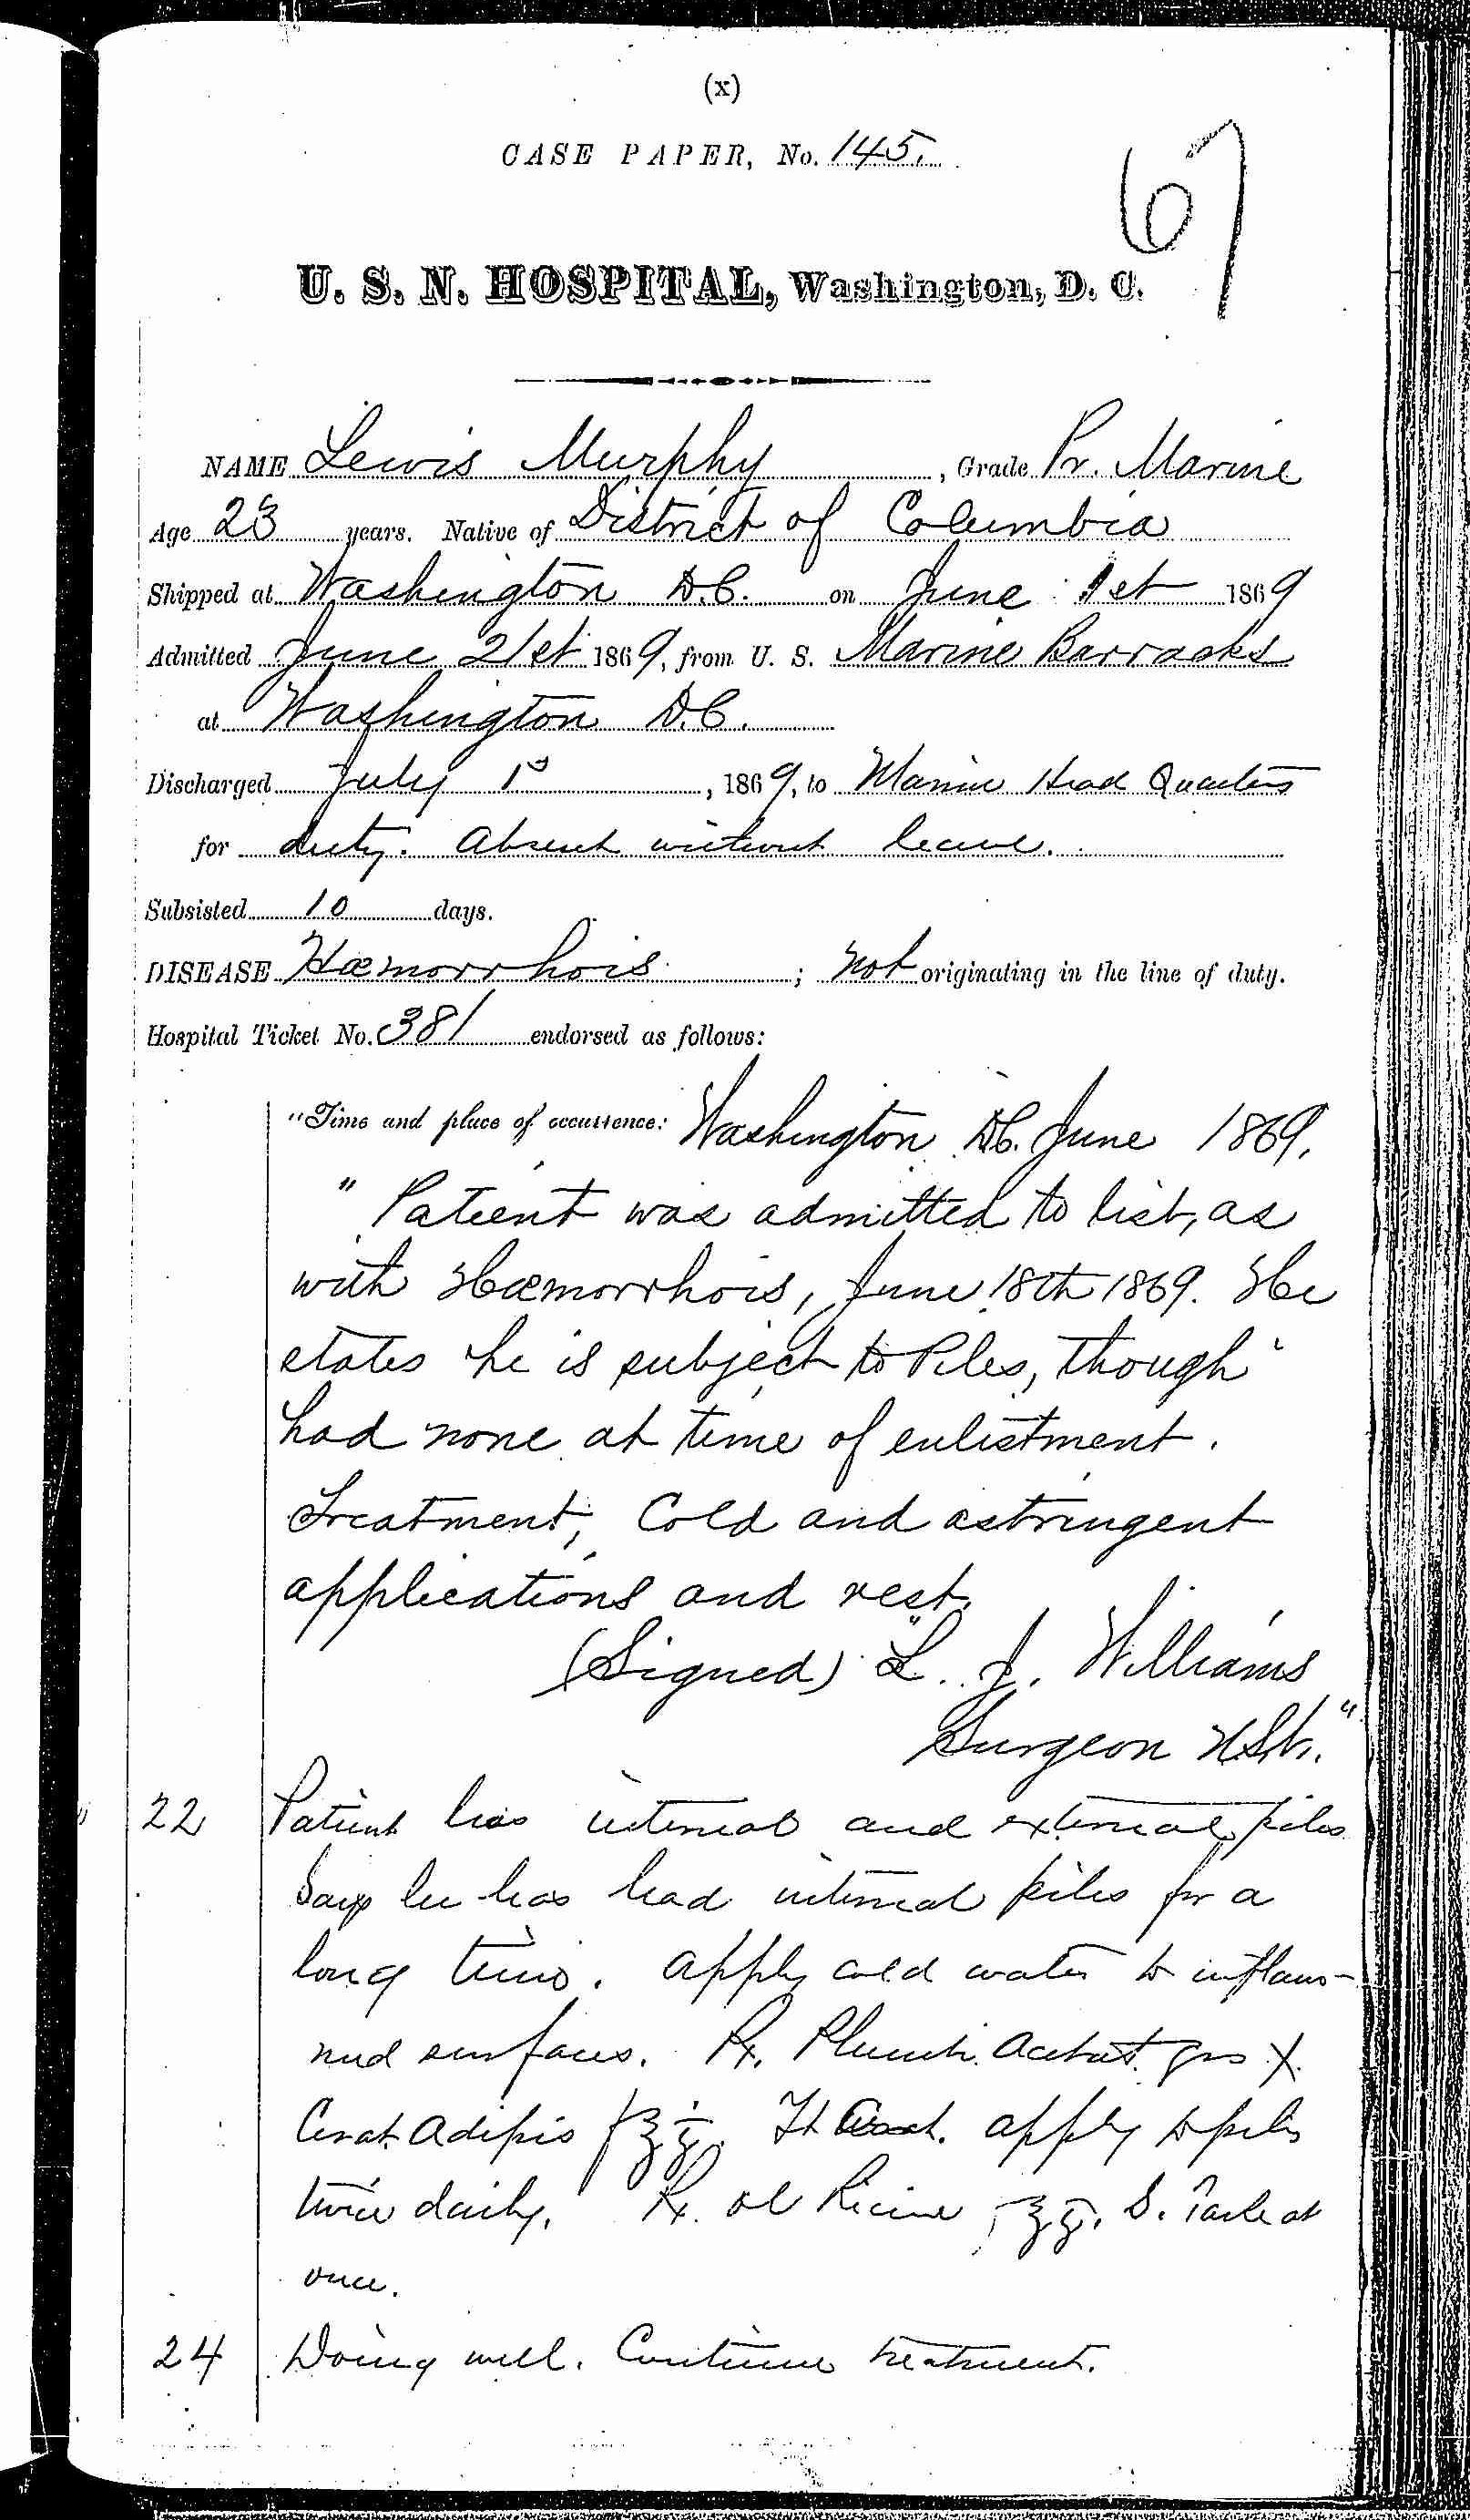 (x)
CASE PAPER, No. 145.
67
U. S. N. HOSPITAL, Washington, D. C.
NAME Lewis Murphy, Grade Pr. Marine
Age 23 years. Native of District of Columbia
Shipped at Washington D.C. on June 1st 1869
Admitted June 21st 1869, from U. S. Marine Barracks
at Washington D.C.
Discharged July 1st, 1869, to Marine Head Quarters
for duty. Absent without leave.
Subsisted 10 days.
DISEASE Hæmorrhois; not originating in the line of duty.
Hospital Ticket No. 381 endorsed as follows:
"Time and place of occurrence: Washington D.C. June 1869.
"Patient was admitted to list, as
with Hæmorrhois, June 18th 1869. He
states he is subject to Piles, though
had none at time of enlistment.
Treatment, Cold and astringent
applications and rest.
(Signed) "L. J. Williams
Surgeon USN."
22 Patient has internal and external piles
Says he has had internal piles for a
long time. Apply cold water to inflam-
med surfaces. Rx. Plumbi. Acetat. grs X.
Cerat. Adipis ℥j. Ft apply to piles
twice daily. Rx. Ol Ricini ℥j. S. Take at
once.
24 Doing well. Continue treatment.